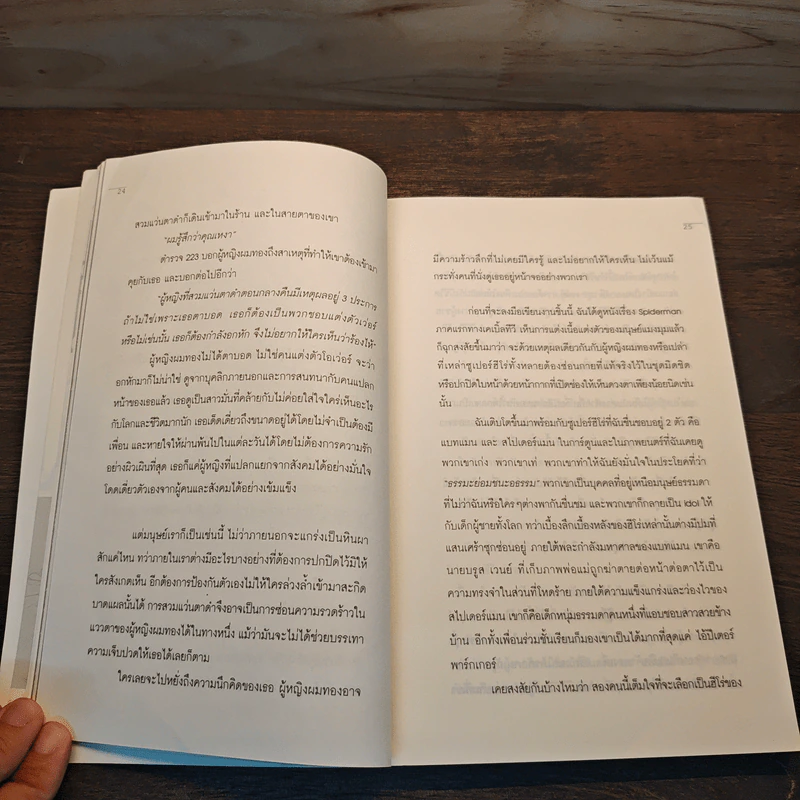 24
สวมแว่นตาดำก็เดินเข้ามาในร้าน และในสายตาของเขา
"ผมรู้สึกว่าคุณเหงา"
ตำรวจ 223 บอกผู้หญิงผมทองถึงสาเหตุที่ทำให้เขาต้องเข้ามา
คุยกับเธอ และบอกต่อไปอีกว่า
"ผู้หญิงที่สวมแว่นตาดำตอนกลางคืนมีเหตุผลอยู่ 3 ประการ
ถ้าไม่ใช่เพราะเธอตาบอด เธอก็ต้องเป็นพวกชอบแต่งตัวโอเว่อร์
หรือไม่เช่นนั้น เธอก็กำลังอกหัก จึงไม่อยากให้ใครเห็นว่าร้องไห้"
ผู้หญิงผมทองไม่ได้ตาบอด ไม่ใช่คนแต่งตัวโอเว่อร์ จะว่า
อกหักมาก็ไม่น่าใช่ ดูจากบุคลิกภายนอกและการสนทนากับคนแปลก
หน้าของเธอแล้ว เธอดูเป็นสาวมั่นที่คล้ายกับไม่ค่อยใส่ใจใคร่เห็นอะไร
กับโลกและชีวิตมากนัก เธอเด็ดเดี่ยวถึงขนาดอยู่ได้โดยไม่จำเป็นต้องมี
เพื่อน และหายใจให้ผ่านพ้นไปในแต่ละวันได้โดยไม่ต้องการความรัก
อย่างผิวเผินที่สุด เธอก็แค่ผู้หญิงที่แปลกแยกจากสังคมได้อย่างมั่นใจ
โดดเดี่ยวตัวเองจากผู้คนและสังคมได้อย่างเข้มแข็ง
แต่มนุษย์เราก็เป็นเช่นนี้ ไม่ว่าภายนอกจะแกร่งเป็นหินผา
สักแค่ไหน ทว่าภายในเราต่างมีอะไรบางอย่างที่ต้องการปกปิดไว้มิให้
ใครสังเกตเห็น อีกต้องการป้องกันตัวเองไม่ให้ใครล่วงล้ำเข้ามาสะกิด
บาดแผลนั้นได้ การสวมแว่นตาดำจึงอาจเป็นการซ่อนความรวดร้าวใน
แววตาของผู้หญิงผมทองได้ในทางหนึ่ง แม้ว่ามันจะไม่ได้ช่วยบรรเทา
ความเจ็บปวดให้เธอได้เลยก็ตาม
ใครเลยจะไปหยั่งถึงความนึกคิดของเธอ ผู้หญิงผมทองอาจ
25
มีความร้าวลึกที่ไม่เคยมีใครรู้ และไม่อยากให้ใครเห็น ไม่เว้นแม้
กระทั่งคนที่นั่งดูเธออยู่หน้าจออย่างพวกเรา
ก่อนที่จะลงมือเขียนงานชิ้นนี้ ฉันได้ดูหนังเรื่อง Spiderman
ภาคแรกทางเคเบิ้ลทีวี เห็นการแต่งเนื้อแต่งตัวของมนุษย์แมงมุมแล้ว
ก็ฉุกสงสัยขึ้นมาว่า จะด้วยเหตุผลเดียวกันกับผู้หญิงผมทองหรือเปล่า
ที่เหล่าซูเปอร์ฮีโร่ทั้งหลายต้องซ่อนกายที่แท้จริงไว้ในชุดมิดชิด
หรือปกปิดใบหน้าด้วยหน้ากากที่เปิดช่องให้เห็นดวงตาเพียงน้อยนิดเช่น
นั้น
ฉันเติบโตขึ้นมาพร้อมกับซูเปอร์ฮีโร่ที่ฉันชื่นชอบอยู่ 2 ตัว คือ
แบทแมน และ สไปเดอร์แมน ในการ์ตูนและในภาพยนตร์ที่ฉันเคยดู
พวกเขาเก่ง พวกเขาเท่ พวกเขาทำให้ฉันยังมั่นใจในประโยคที่ว่า
"ธรรมะย่อมชนะอธรรม" พวกเขาเป็นบุคคลที่อยู่เหนือมนุษย์ธรรมดา
ที่ไม่ว่าฉันหรือใครๆต่างพากันชื่นชม และพวกเขาก็กลายเป็น Idol ให้
กับเด็กผู้ชายทั้งโลก ทว่าเบื้องลึกเบื้องหลังของฮีโร่เหล่านั้นต่างมีปมที่
แสนเศร้าซุกซ่อนอยู่ ภายใต้พละกำลังมหาศาลของแบทแมน เขาคือ
นายบรูส เวนย์ ที่เก็บภาพพ่อแม่ถูกฆ่าตายต่อหน้าต่อตาไว้เป็น
ความทรงจำในส่วนที่โหดร้าย ภายใต้ความแข็งแกร่งและว่องไวของ
สไปเดอร์แมน เขาก็คือเด็กหนุ่มธรรมดาคนหนึ่งที่แอบชอบสาวสวยข้าง
บ้าน อีกทั้งเพื่อนร่วมชั้นเรียนก็มองเขาเป็นได้มากที่สุดแค่ ไอ้ปีเตอร์
พาร์กเกอร์
เคยสงสัยกันบ้างไหมว่า สองคนนี้เต็มใจที่จะเลือกเป็นฮีโร่ของ